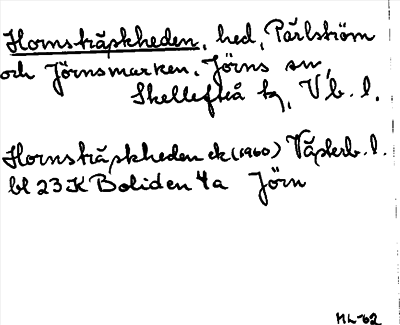 Hornsträskheden, hed, Pärlström
och Jörnsmarken. Jörns sn,
Skellefteå kg, Vb. l.
Hornsträskheden ek (1960) Västerb. l.
bl 23 K Boliden 4a Jörn
ML-62